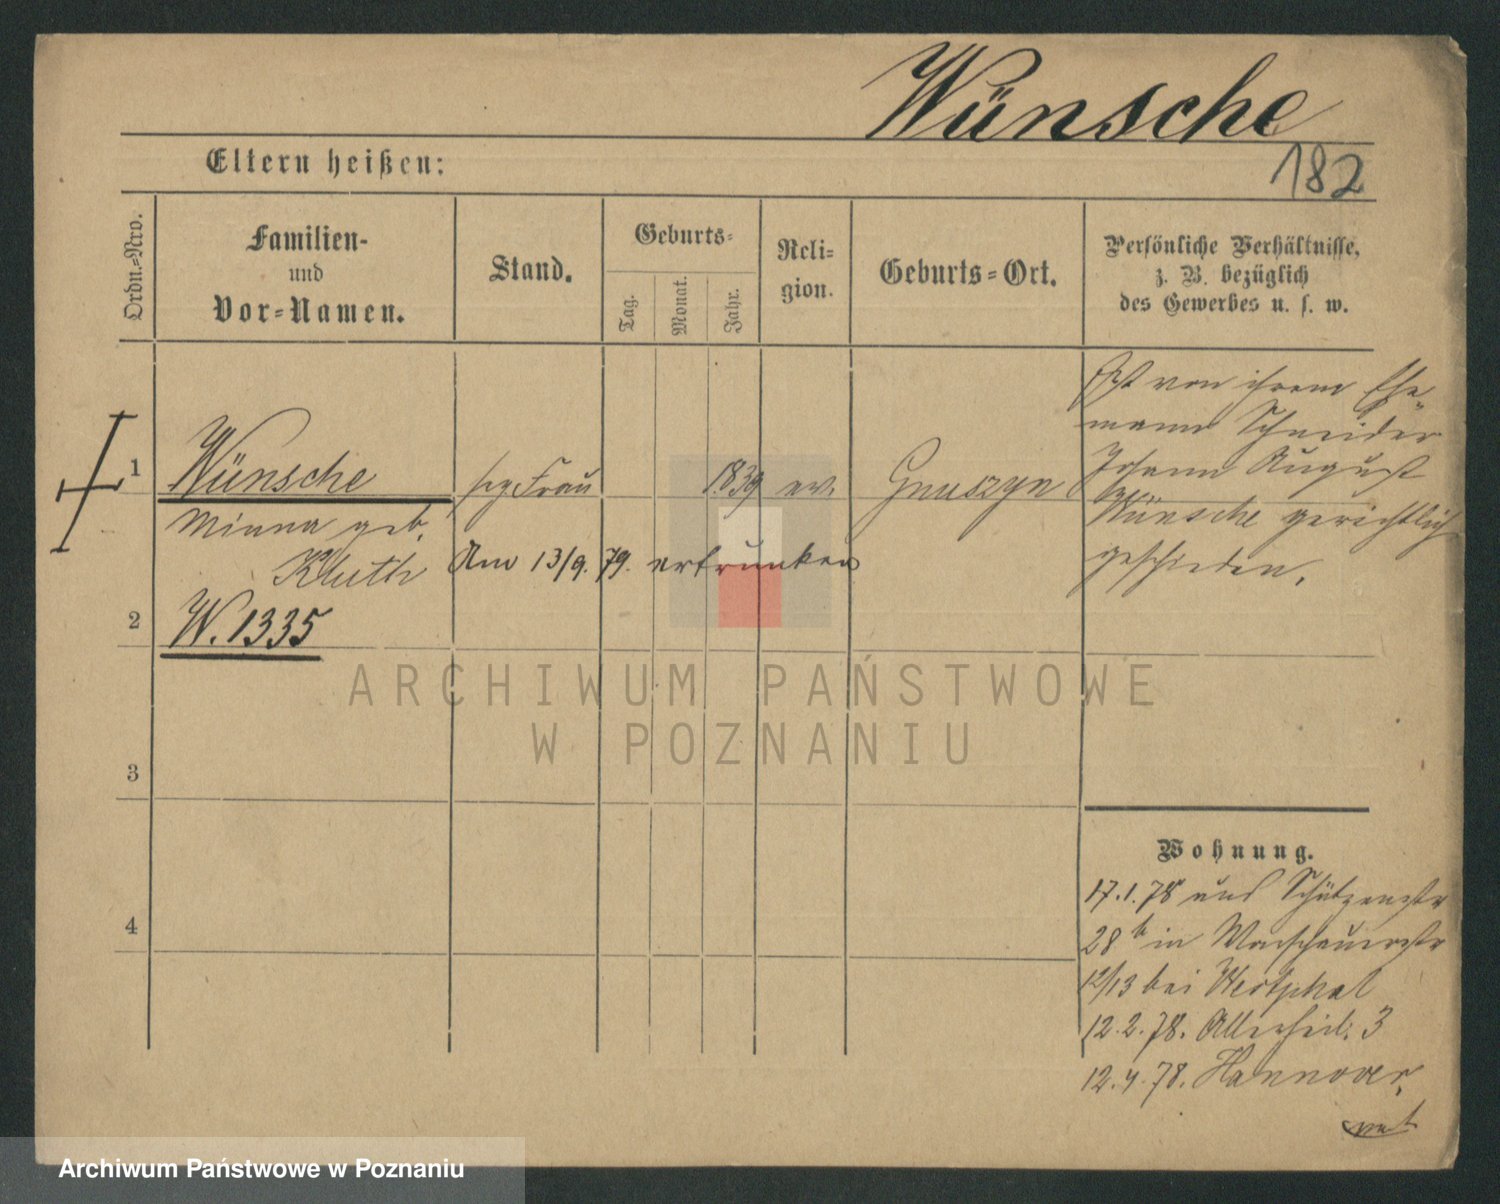 Wünsche
Eltern heißen:
182
Ordn.=Nro.
Familien-
und
Vor=Namen.
Stand.
Geburts=
Tag.
Monat.
Jahr.
Reli-
gion.
Geburts=Ort.
Persönliche Verhältnisse,
z. B. bezüglich
des Gewerbes u. s. w.
1
Wünsche
Minna geb.
Kluth
Frau
1839
ev.
Gnuszyn
Am 13/9. 79. ertrunken
Ist von ihrem Ehe=
mann Schneider
Johann August
Wünsche gerichtlich
geschieden.
2
W. 1335
3
4
Wohnung.
17.1.78 aus Schützenstr
28 b in Warschauerstr
12/13 bei Westphal
12.2.78. Allerheil. 3
12.4.78. Hannover,
ARCHIWUM PAŃSTWOWE
W POZNANIU
Archiwum Państwowe w Poznaniu